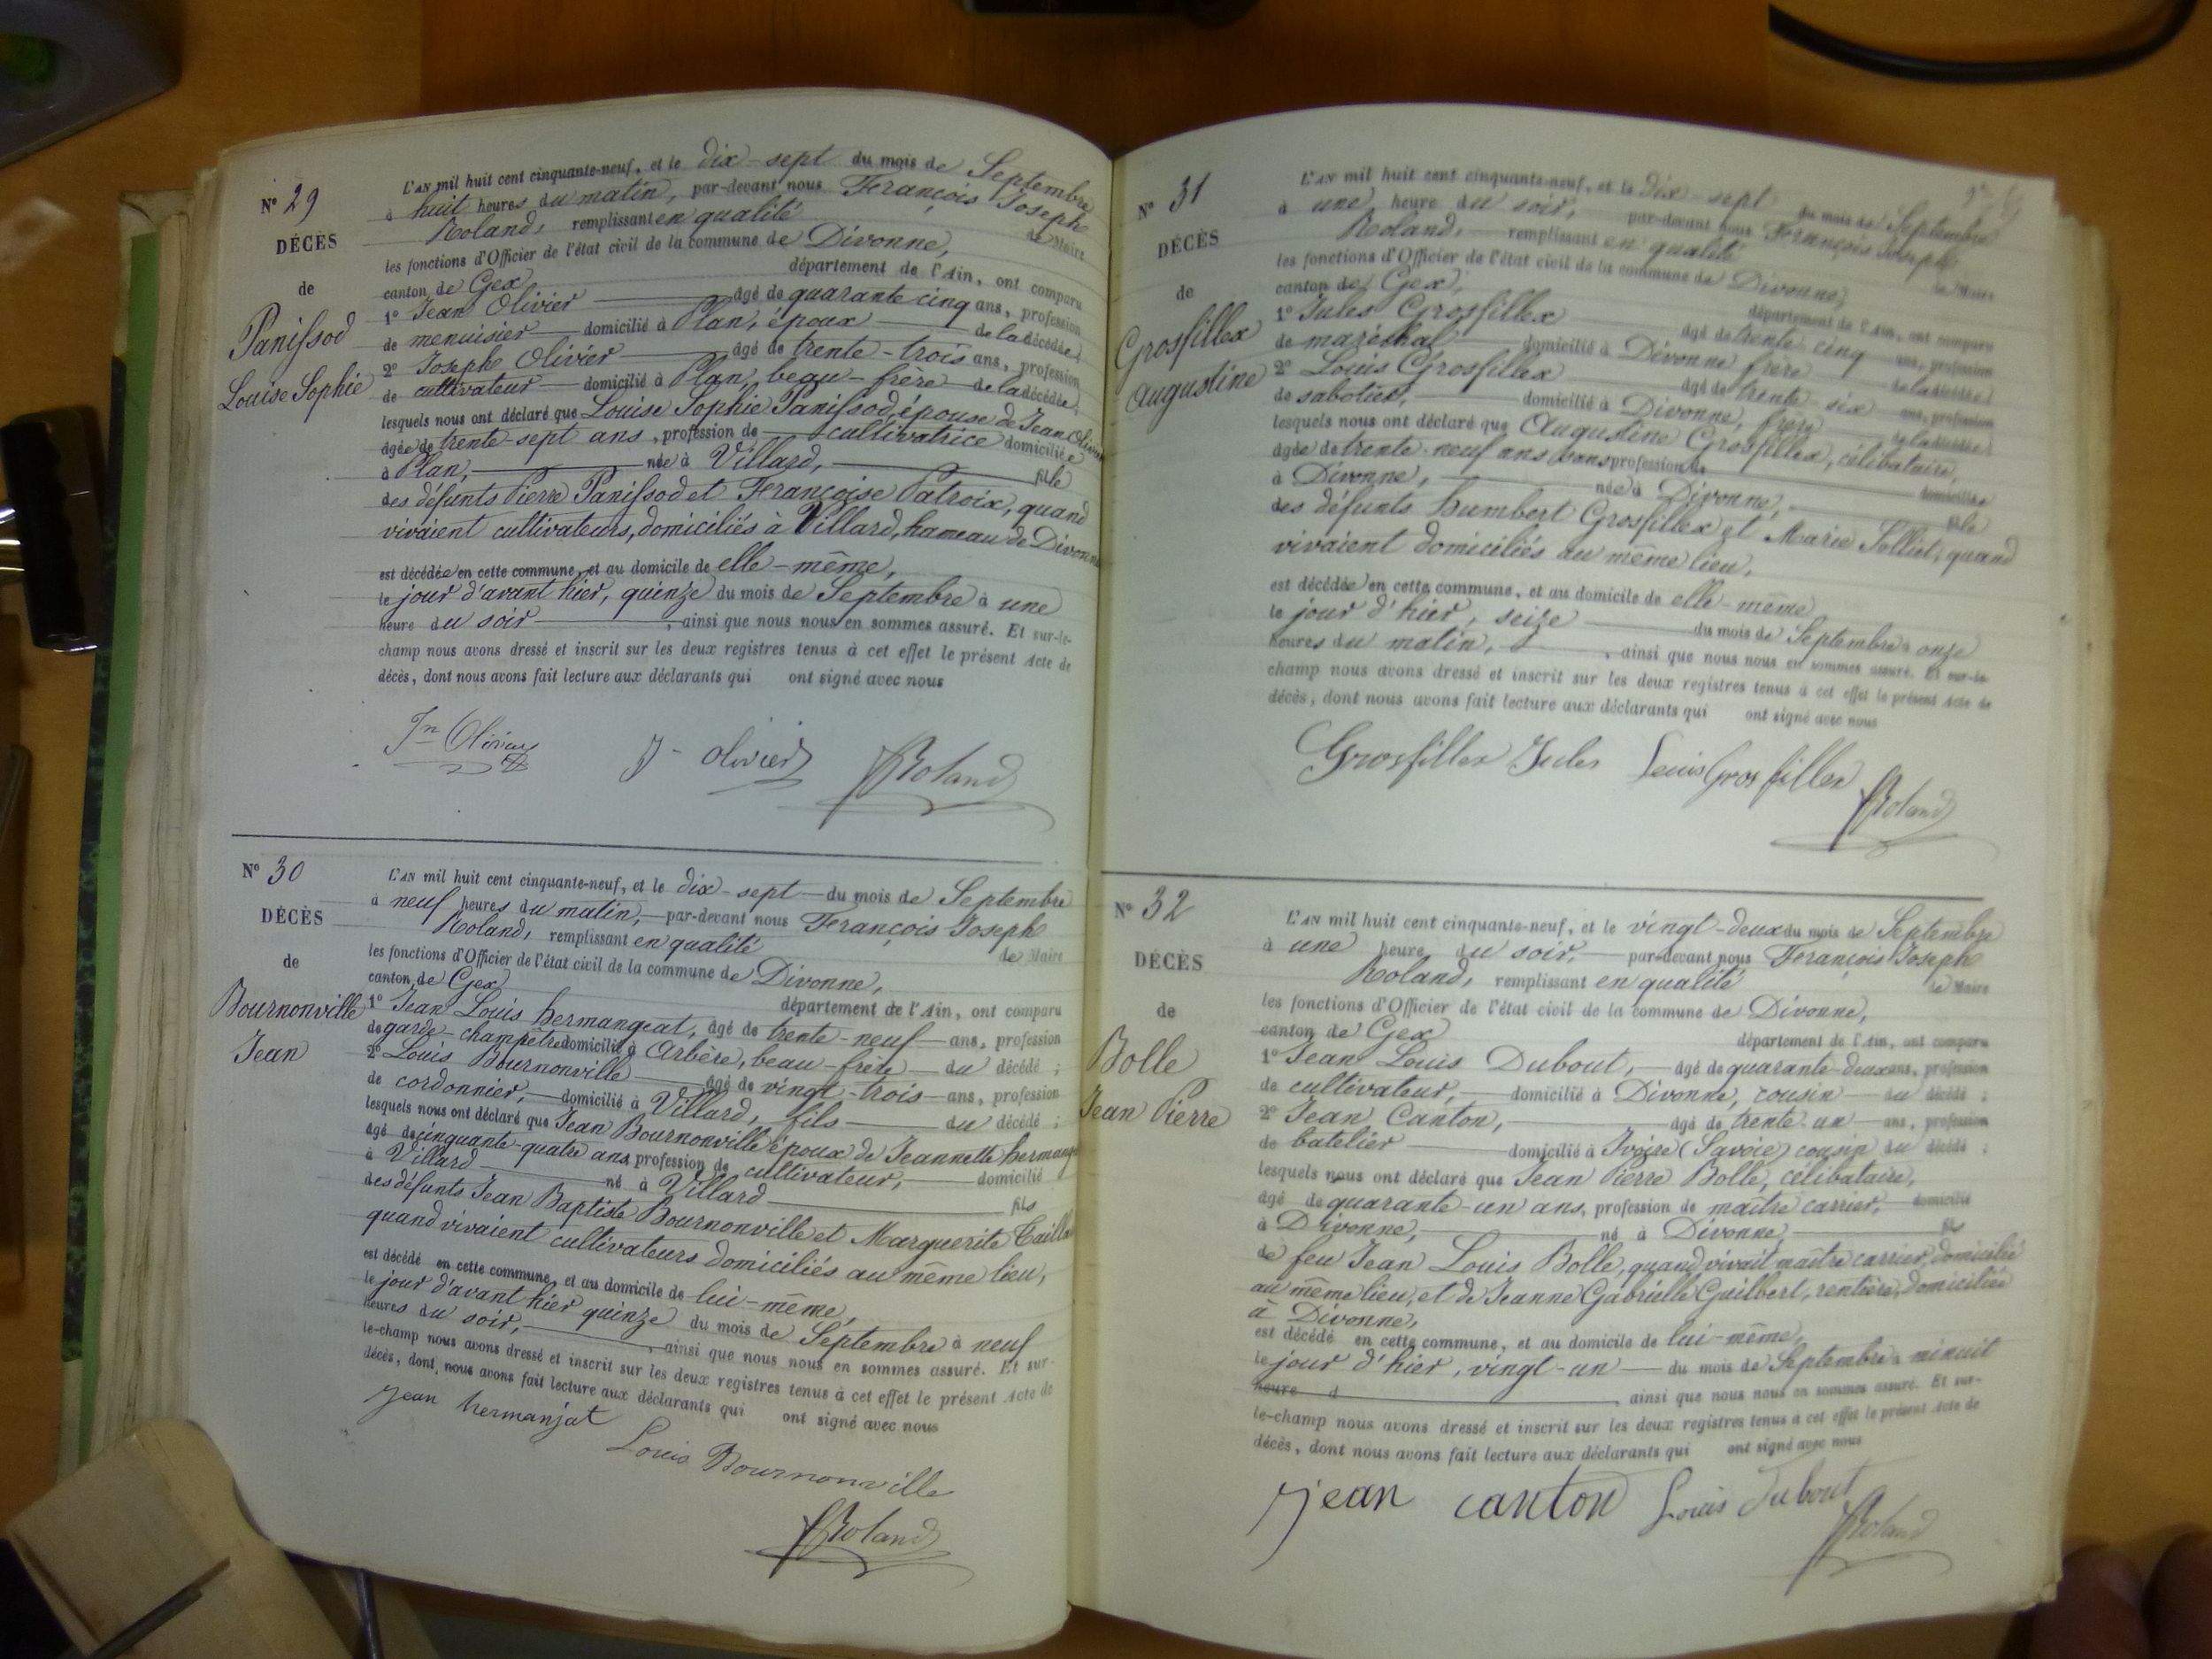 N° 29
DÉCÈS
de
Panissod
Louise Sophie
L'AN mil huit cent cinquante-neuf, et le dix-sept du mois de Septembre
à huit heures du matin, par-devant nous François Joseph
Roland, remplissant en qualité de Maire
les fonctions d'Officier de l'état civil de la commune de Divonne,
canton de Gex département de l'Ain, ont comparu
1° Jean Olivier âgé de quarante cinq ans, profession
de menuisier domicilié à Plan, époux de la décédée;
2° Joseph Olivier âgé de trente-trois ans, profession
de cultivateur domicilié à Plan, beau-frère de la décédée;
lesquels nous ont déclaré que Louise Sophie Panissod, épouse de Jean Olivier
âgée de trente-sept ans, profession de cultivatrice domiciliée
à Plan, née à Villard, fille
des défunts Pierre Panissod et Françoise Patroix, quand
vivaient cultivateurs, domiciliés à Villard, hameau de Divonne
est décédée en cette commune, et au domicile de elle-même,
le jour d'avant hier, quinze du mois de Septembre à une
heure du soir, ainsi que nous nous en sommes assuré. Et sur-le-
champ nous avons dressé et inscrit sur les deux registres tenus à cet effet le présent Acte de
décès, dont nous avons fait lecture aux déclarants qui ont signé avec nous
Jn Olivier J- olivier Roland
N° 30
DÉCÈS
de
Bournonville
Jean
L'AN mil huit cent cinquante-neuf, et le dix-sept du mois de Septembre
à neuf heures du matin, par-devant nous François Joseph
Roland, remplissant en qualité de Maire
les fonctions d'Officier de l'état civil de la commune de Divonne,
canton de Gex département de l'Ain, ont comparu
1° Jean Louis hermanjat, âgé de trente-neuf ans, profession
de garde-champêtre domicilié à Arbère, beau-frère du décédé;
2° Louis Bournonville âgé de vingt-trois ans, profession
de cordonnier, domicilié à Villard, fils du décédé;
lesquels nous ont déclaré que Jean Bournonville époux de Jeannette
âgé de cinquante-quatre ans, profession de cultivateur, domicilié
à Villard né à Villard fils
des défunts Jean Baptiste Bournonville et Marguerite
quand vivaient cultivateurs domiciliés au même lieu,
est décédé en cette commune, et au domicile de lui-même,
le jour d'avant hier quinze du mois de Septembre à neuf
heures du soir, ainsi que nous nous en sommes assuré. Et sur-
le-champ nous avons dressé et inscrit sur les deux registres tenus à cet effet le présent Acte de
décès, dont nous avons fait lecture aux déclarants qui ont signé avec nous
Jean hermanjat
Louis Bournonville
Roland
N° 31
DÉCÈS
de
Grosfillex
Augustine
L'AN mil huit cent cinquante-neuf, et le dix-sept du mois de Septembre
à une heure du soir, par-devant nous François Joseph
Roland, remplissant en qualité de Maire
les fonctions d'Officier de l'état civil de la commune de Divonne,
canton de Gex, département de l'Ain, ont comparu
1° Jules Grosfillex âgé de trente cinq ans, profession
de maréchal domicilié à Divonne frère de la décédée;
2° Louis Grosfillex âgé de trente-six ans, profession
de sabotier, domicilié à Divonne, frère de la décédée;
lesquels nous ont déclaré que Augustine Grosfillex, célibataire,
âgée de trente-neuf ans sans profession domiciliée
à Divonne, née à Divonne, fille
des défunts humbert Grosfillex et Marie Jolliet, quand
vivaient domiciliés au même lieu,
est décédée en cette commune, et au domicile de elle-même
le jour d'hier, seize du mois de Septembre à onze
heures du matin, ainsi que nous nous en sommes assuré. Et sur-le-
champ nous avons dressé et inscrit sur les deux registres tenus à cet effet le présent Acte de
décès, dont nous avons fait lecture aux déclarants qui ont signé avec nous
Grosfillex Jules Louis Grosfillex
Roland
N° 32
DÉCÈS
de
Bolle
Jean Pierre
L'AN mil huit cent cinquante-neuf, et le vingt-deux du mois de Septembre
à une heure du soir, par-devant nous François Joseph
Roland, remplissant en qualité de Maire
les fonctions d'Officier de l'état civil de la commune de Divonne,
canton de Gex département de l'Ain, ont comparu
1° Jean Louis Dubout, âgé de quarante-deux ans, profession
de cultivateur, domicilié à Divonne, cousin du décédé;
2° Jean Canton, âgé de trente-un ans, profession
de batelier domicilié à Ivoire (Savoie) cousin du décédé;
lesquels nous ont déclaré que Jean Pierre Bolle, célibataire,
âgé de quarante-un ans, profession de maître carrier, domicilié
à Divonne, né à Divonne, fils
de feu Jean Louis Bolle, quand vivait maître carrier, domicilié
au même lieu, et de Jeanne Gabrielle Guilbert, rentière, domiciliée
à Divonne,
est décédé en cette commune, et au domicile de lui-même,
le jour d'hier, vingt-un du mois de Septembre à minuit
heure d ainsi que nous nous en sommes assuré. Et sur-
le-champ nous avons dressé et inscrit sur les deux registres tenus à cet effet le présent Acte de
décès, dont nous avons fait lecture aux déclarants qui ont signé avec nous
jean canton Louis Dubout
Roland